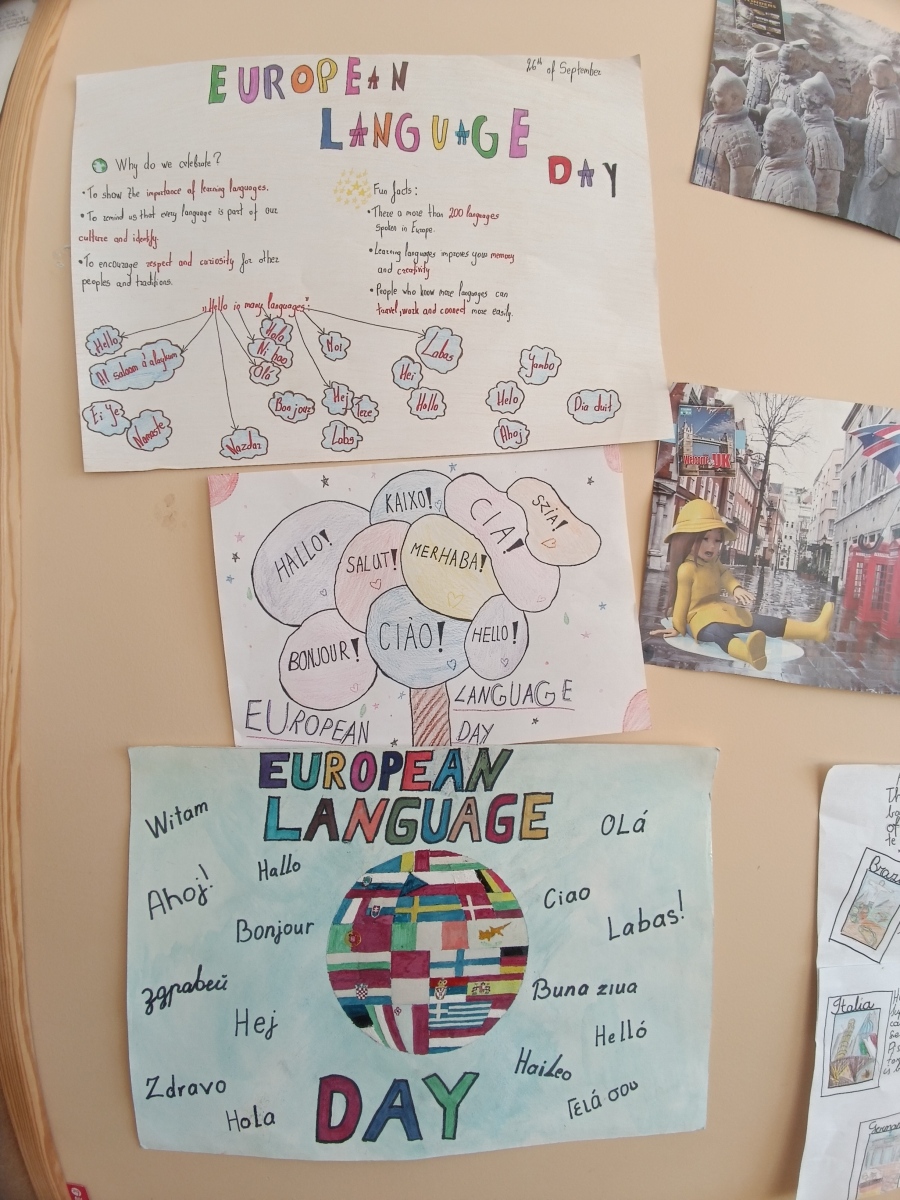 EUROPEAN
LANGUAGE
DAY
26th of September
Why do we celebrate?
• To show the importance of learning languages.
• To remind us that every language is part of our
culture and identify.
• To encourage respect and curiosity for other
peoples and traditions.
Fun facts:
• There a more than 200 languages
spoken in Europe.
• Learning languages improves your memory
and creativity
• People who know more languages can
travel, work and connect more easily.
„Hello in many languages":
Hello
Al salaam à'alaykum
Ei Je
Namaste
Nazdar
Hola
Ni hao
Olá
Bonjour
Moi
Hej
Labs
Labas
Hei
Hallo
Yambo
Helo
Ahoj
Dia duit
HALLO!
KAIXO!
CIA!
SZIA!
SALUT!
MERHABA!
BONJOUR!
CIÀO!
HELLO!
EUROPEAN
LANGUAGE
DAY
Welcome UK
EUROPEAN
LANGUAGE
DAY
Witam
Ahoj!
Hallo
Bonjour
здравей
Hej
Zdravo
Hola
OLá
Ciao
Labas!
Buna ziua
Helló
Haileo
Γειά σου
Italia